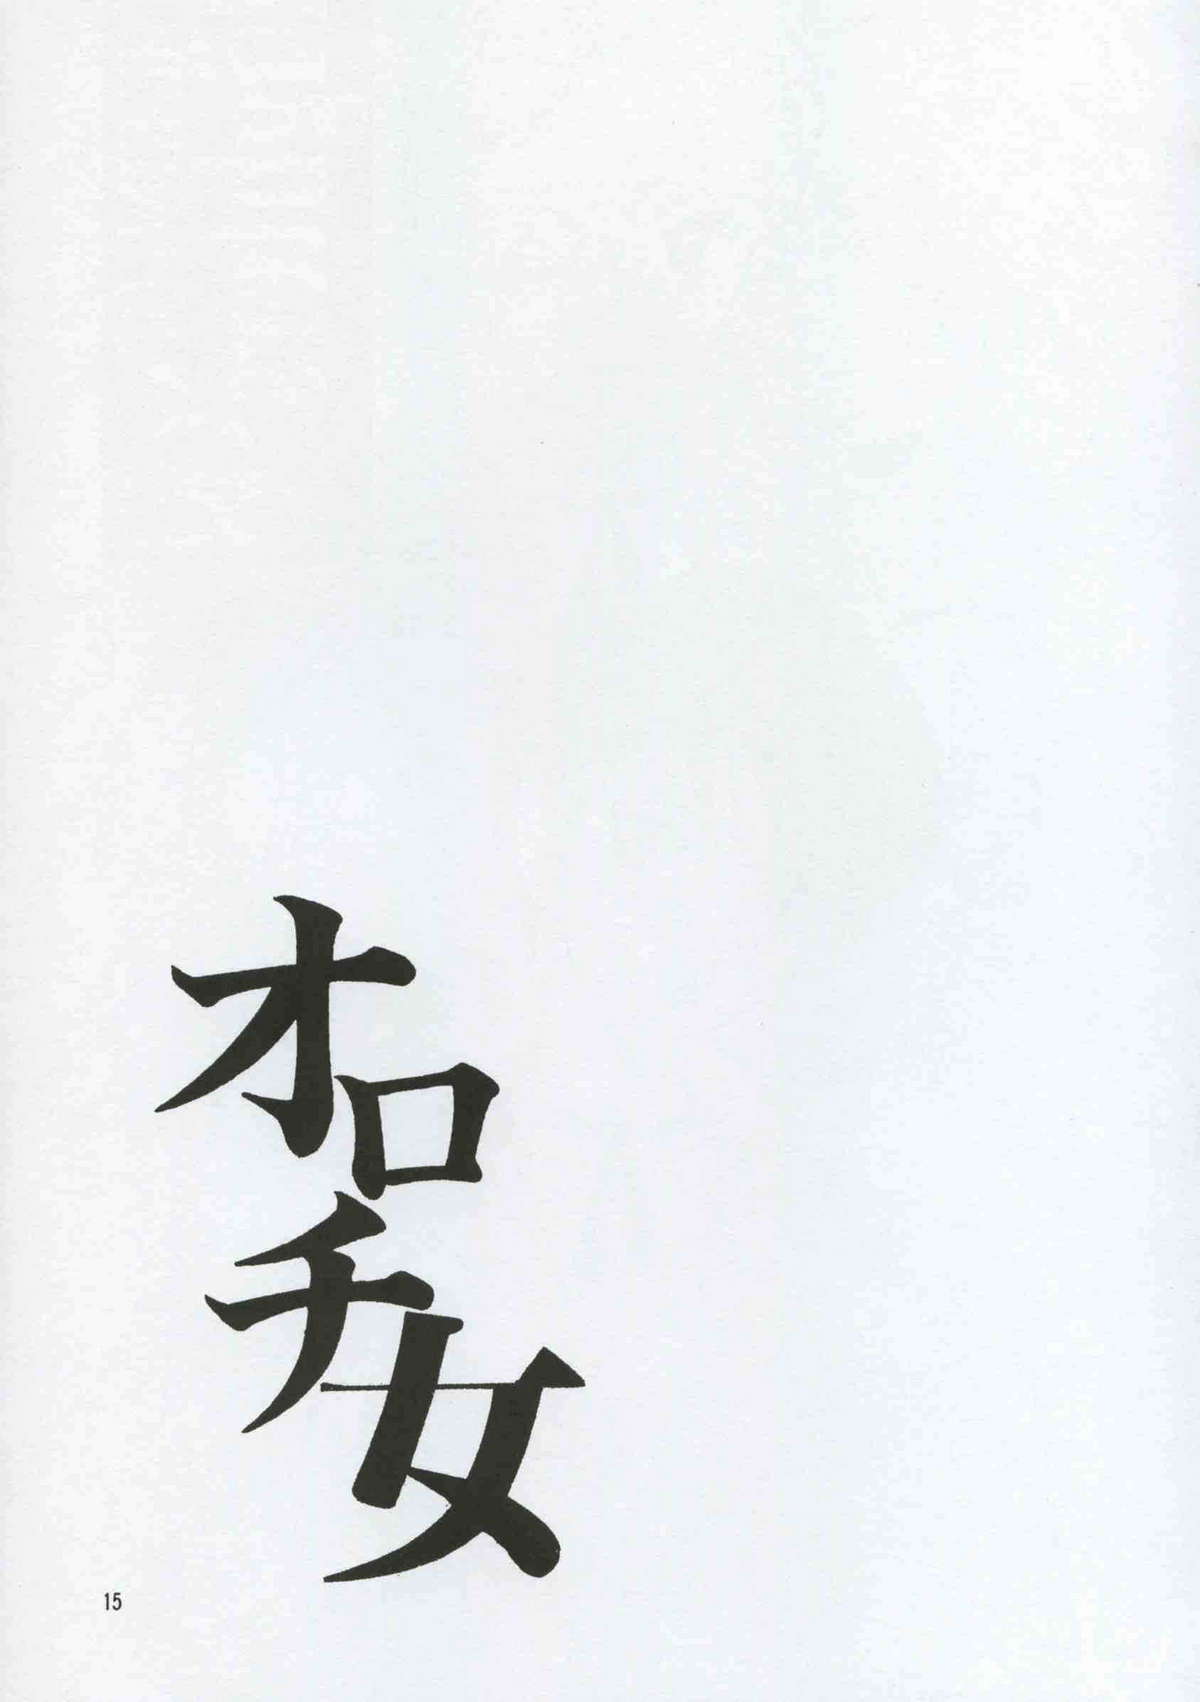 オロチ女
15